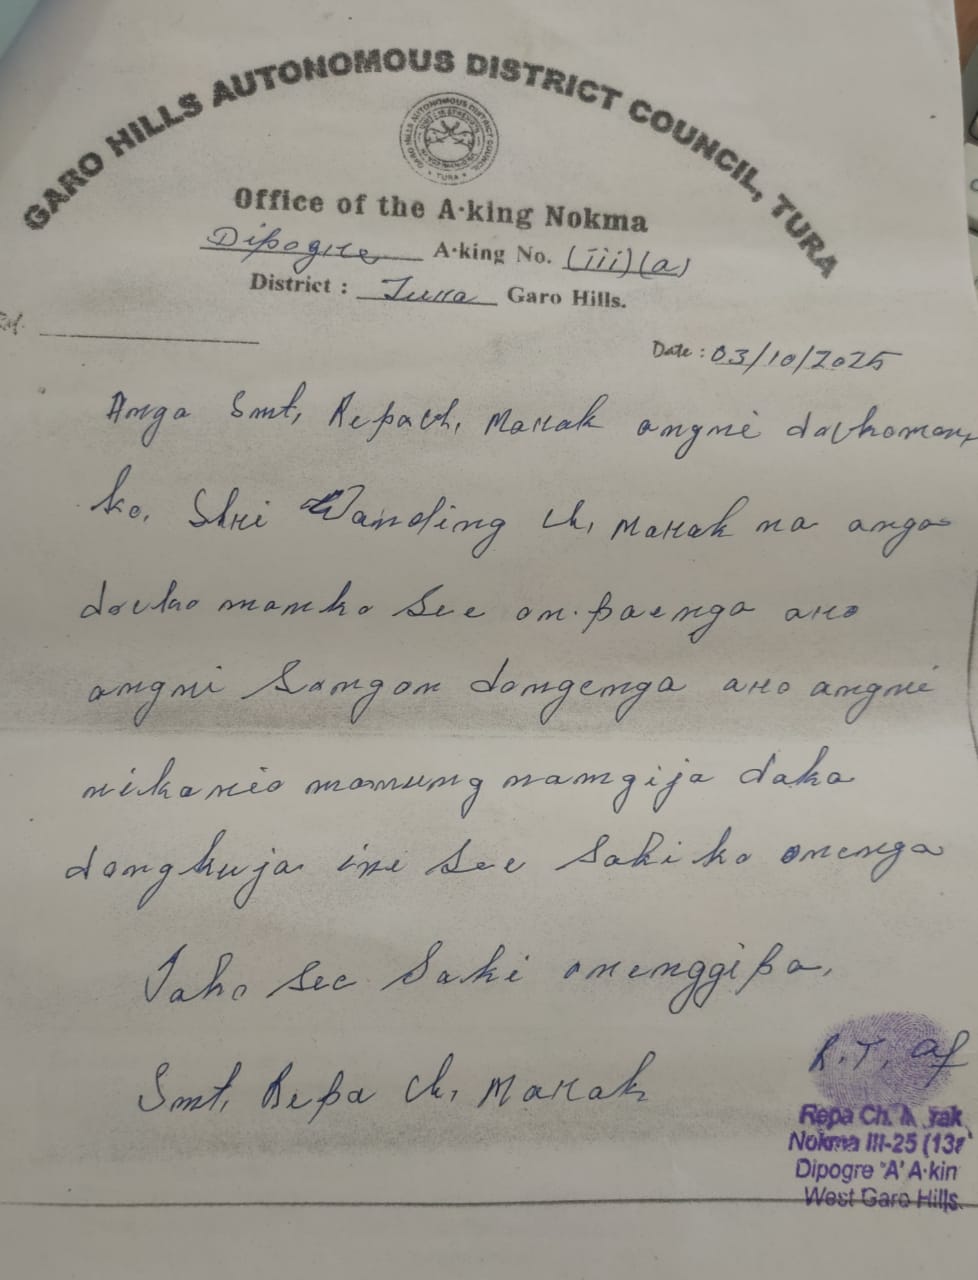 GARO HILLS AUTONOMOUS DISTRICT COUNCIL, TURA
GARO HILLS AUTONOMOUS DISTRICT COUNCIL
TURA
Office of the A·king Nokma
Dipogre A·king No. (iii)(a)
District : Tura Garo Hills.
Ref.
Date : 03/10/2025
Anga Smt, Repa Ch, Marak angni
ko, Shri Wanding Ch, Marak na anga
see on·paenga aro
angni Songon dongenga aro angni
nikanio mamung namgija daka
dongkuja ine see Sakiko onenga
Iako see Saki onenggipa,
Smt, Repa Ch, Marak
R.T. of
Repa Ch.
Nokma III-25
Dipogre 'A' A·kin
West Garo Hills.